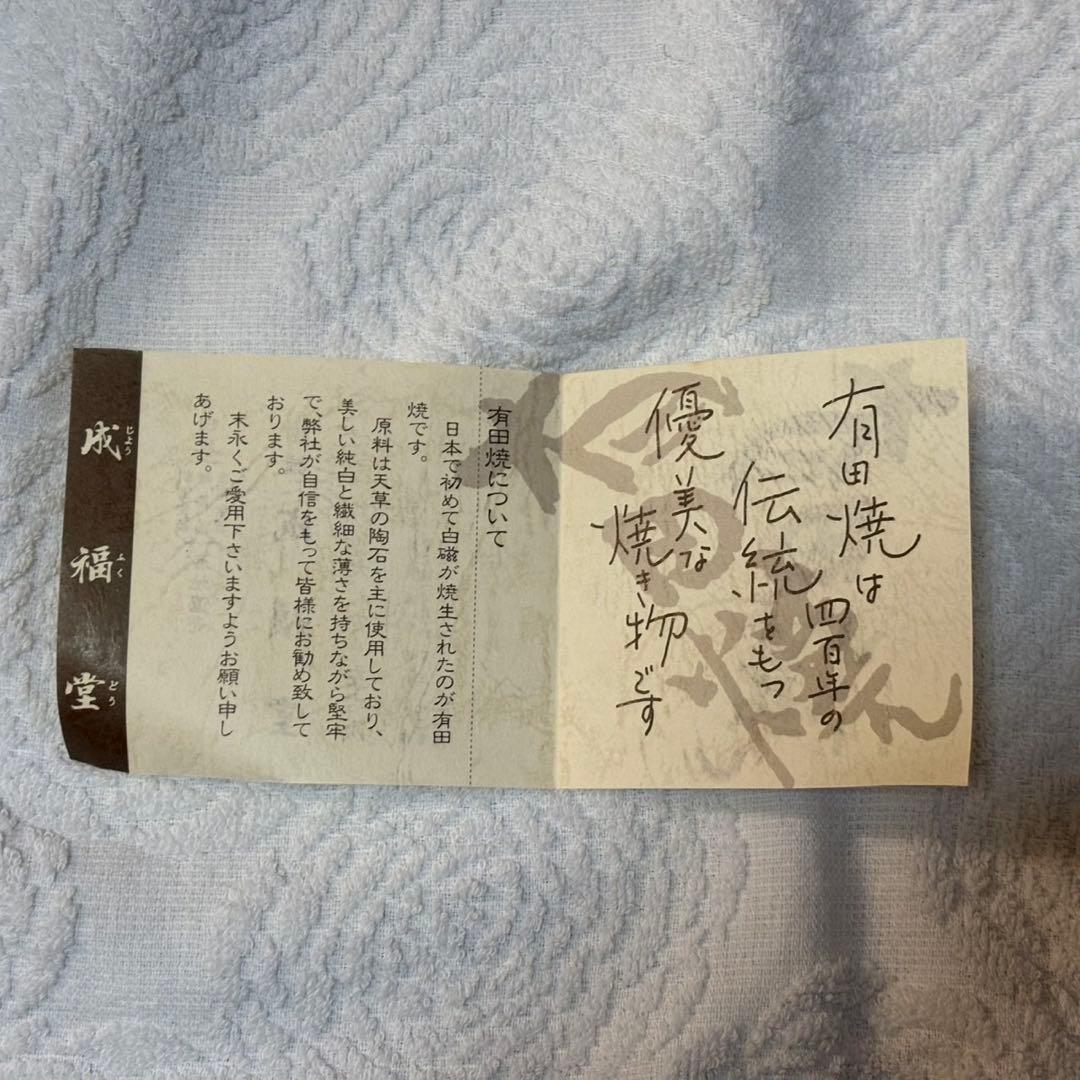 有田焼は
四百年の
伝統をもつ
優美な
焼き物です
有田焼について
日本で初めて白磁が焼生されたのが有田
焼です。
原料は天草の陶石を主に使用しており、
美しい純白と繊細な薄さを持ちながら堅牢
で、弊社が自信をもって皆様にお勧め致して
おります。
末永くご愛用下さいますようお願い申し
あげます。
成福堂
じようふくどう